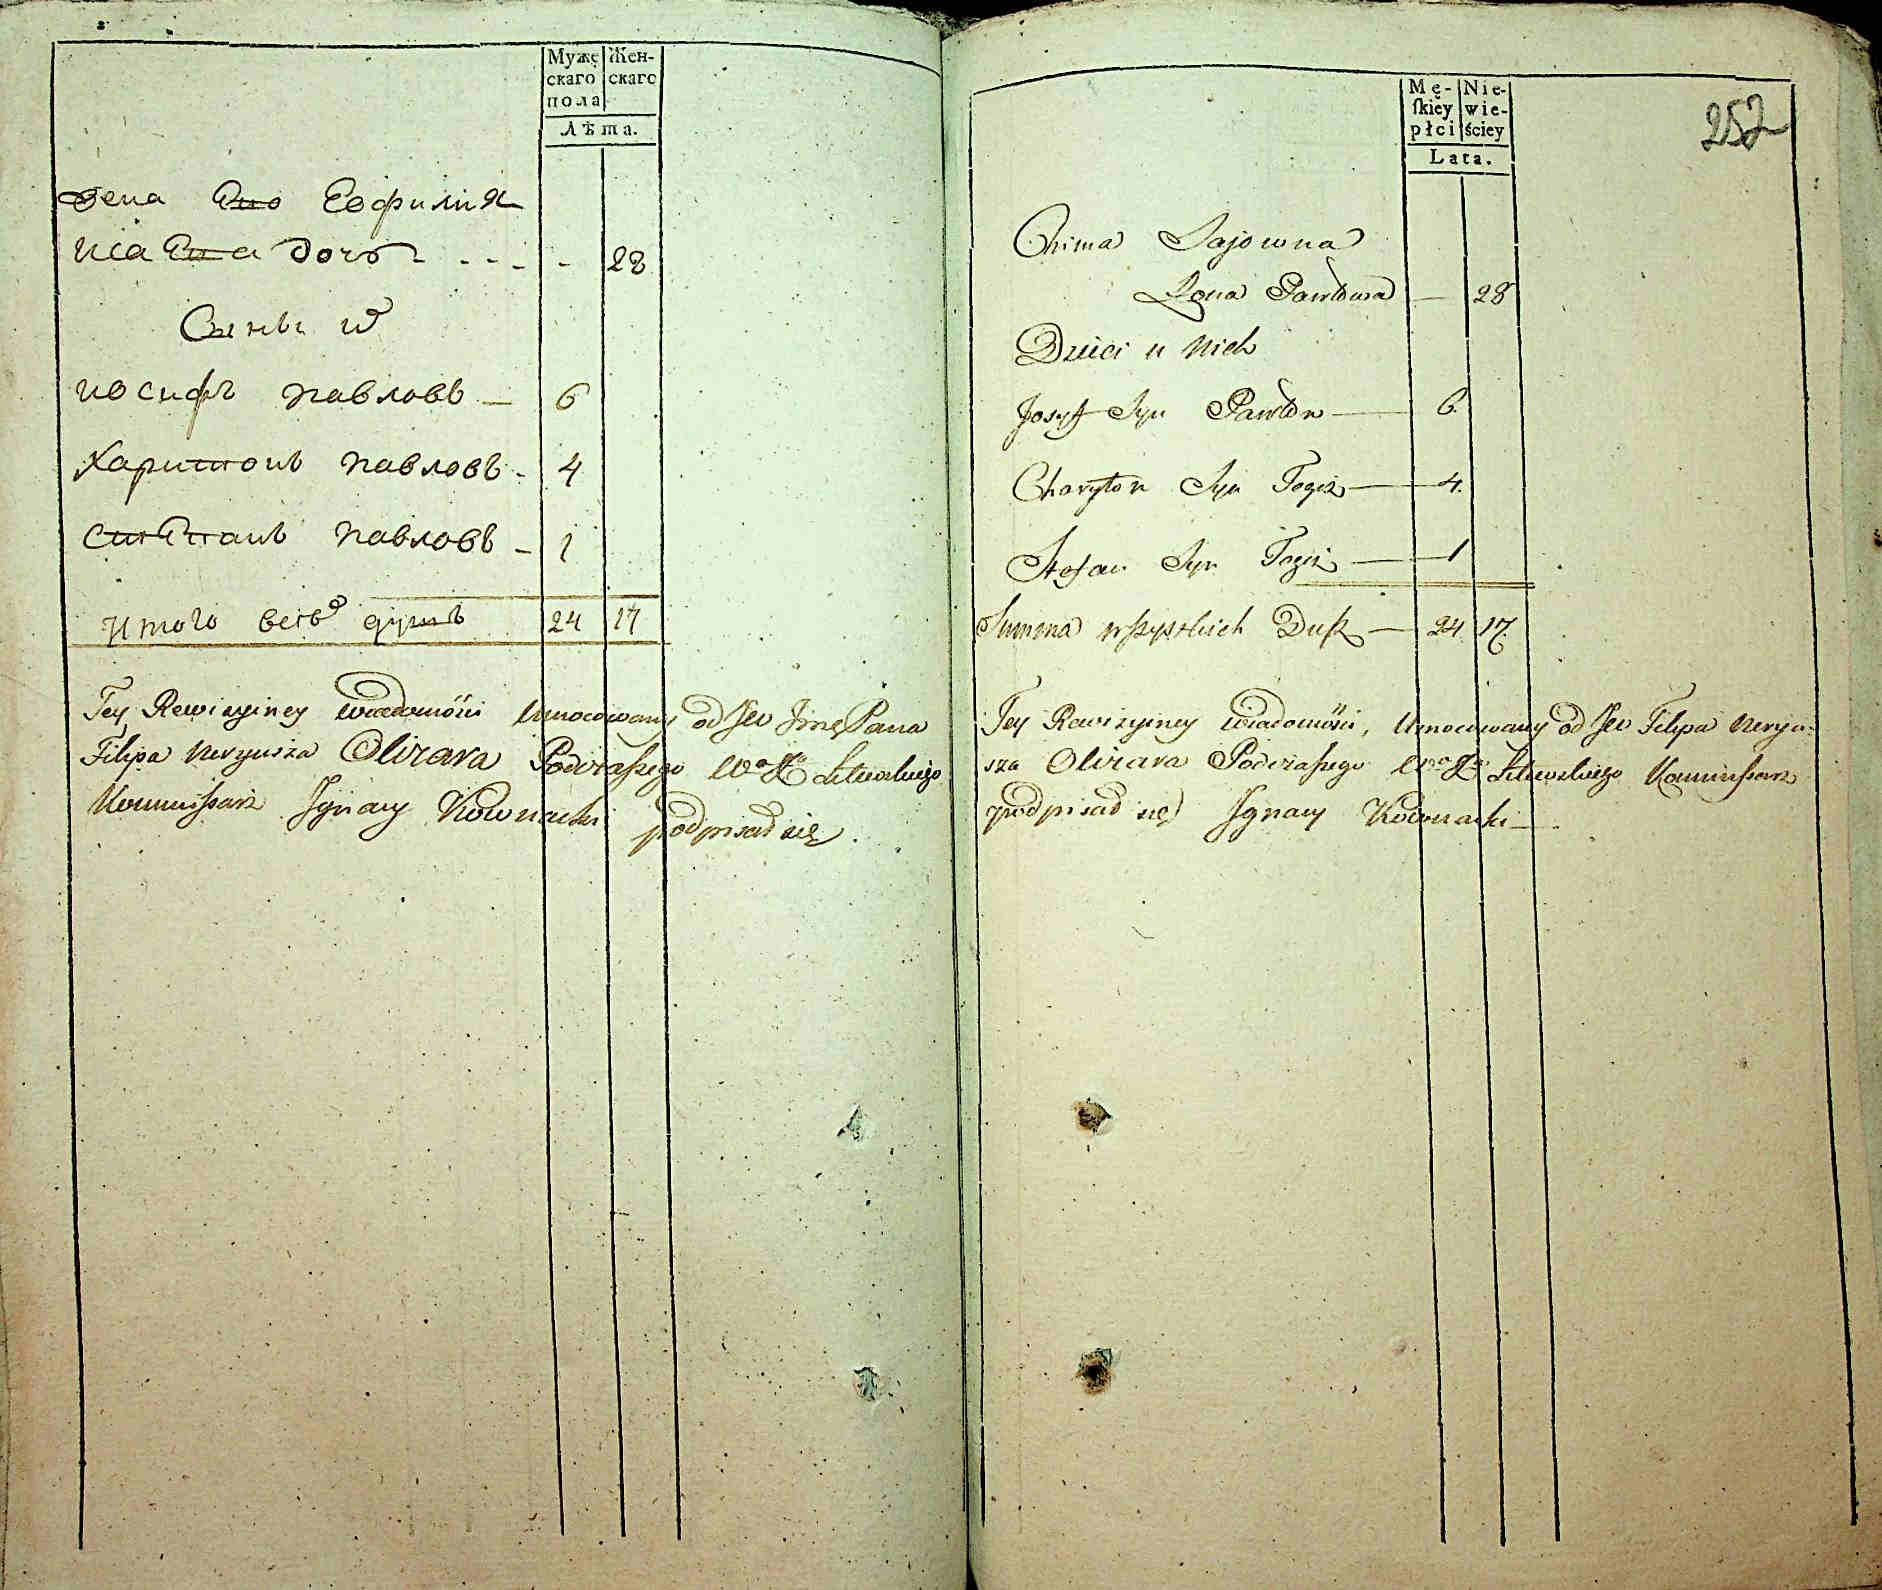 Мужескаго пола
Женскаго
Лѣта.
Жена Его Еофимия
Исаева дочь - - - - 28
Сыны ихъ
иосифъ павловъ — 6
Харитонъ павловъ - 4
степанъ павловъ - 1
Итого всѣхъ душъ 24 17
Tey Rewizyiney wiadomości Umocowany od JW Jmę Pana
Filipa Neryusza Olizara Podczaszego Wo Xo Litewskiego
Kommissarz Jgnacy Kownacki podpisał się.
252
Męſkiey płci
Niewieściey
Lata.
Chima Sajowna
Żona Pawłowa — 28
Dzieci u Nich
Josyf Syn Pawłow — 6.
Charyton Syn Tegoż — 4.
Stefan Syn Tegoż — 1
Summa wszystkich Dusz — 24 17.
Tey Rewizyiney wiadomości, Umocowany od JW Filipa Neryu-
sza Olizara Podczaszego Wo Xo Litewskiego Kommissarz
podpisał się Jgnacy Kownacki —